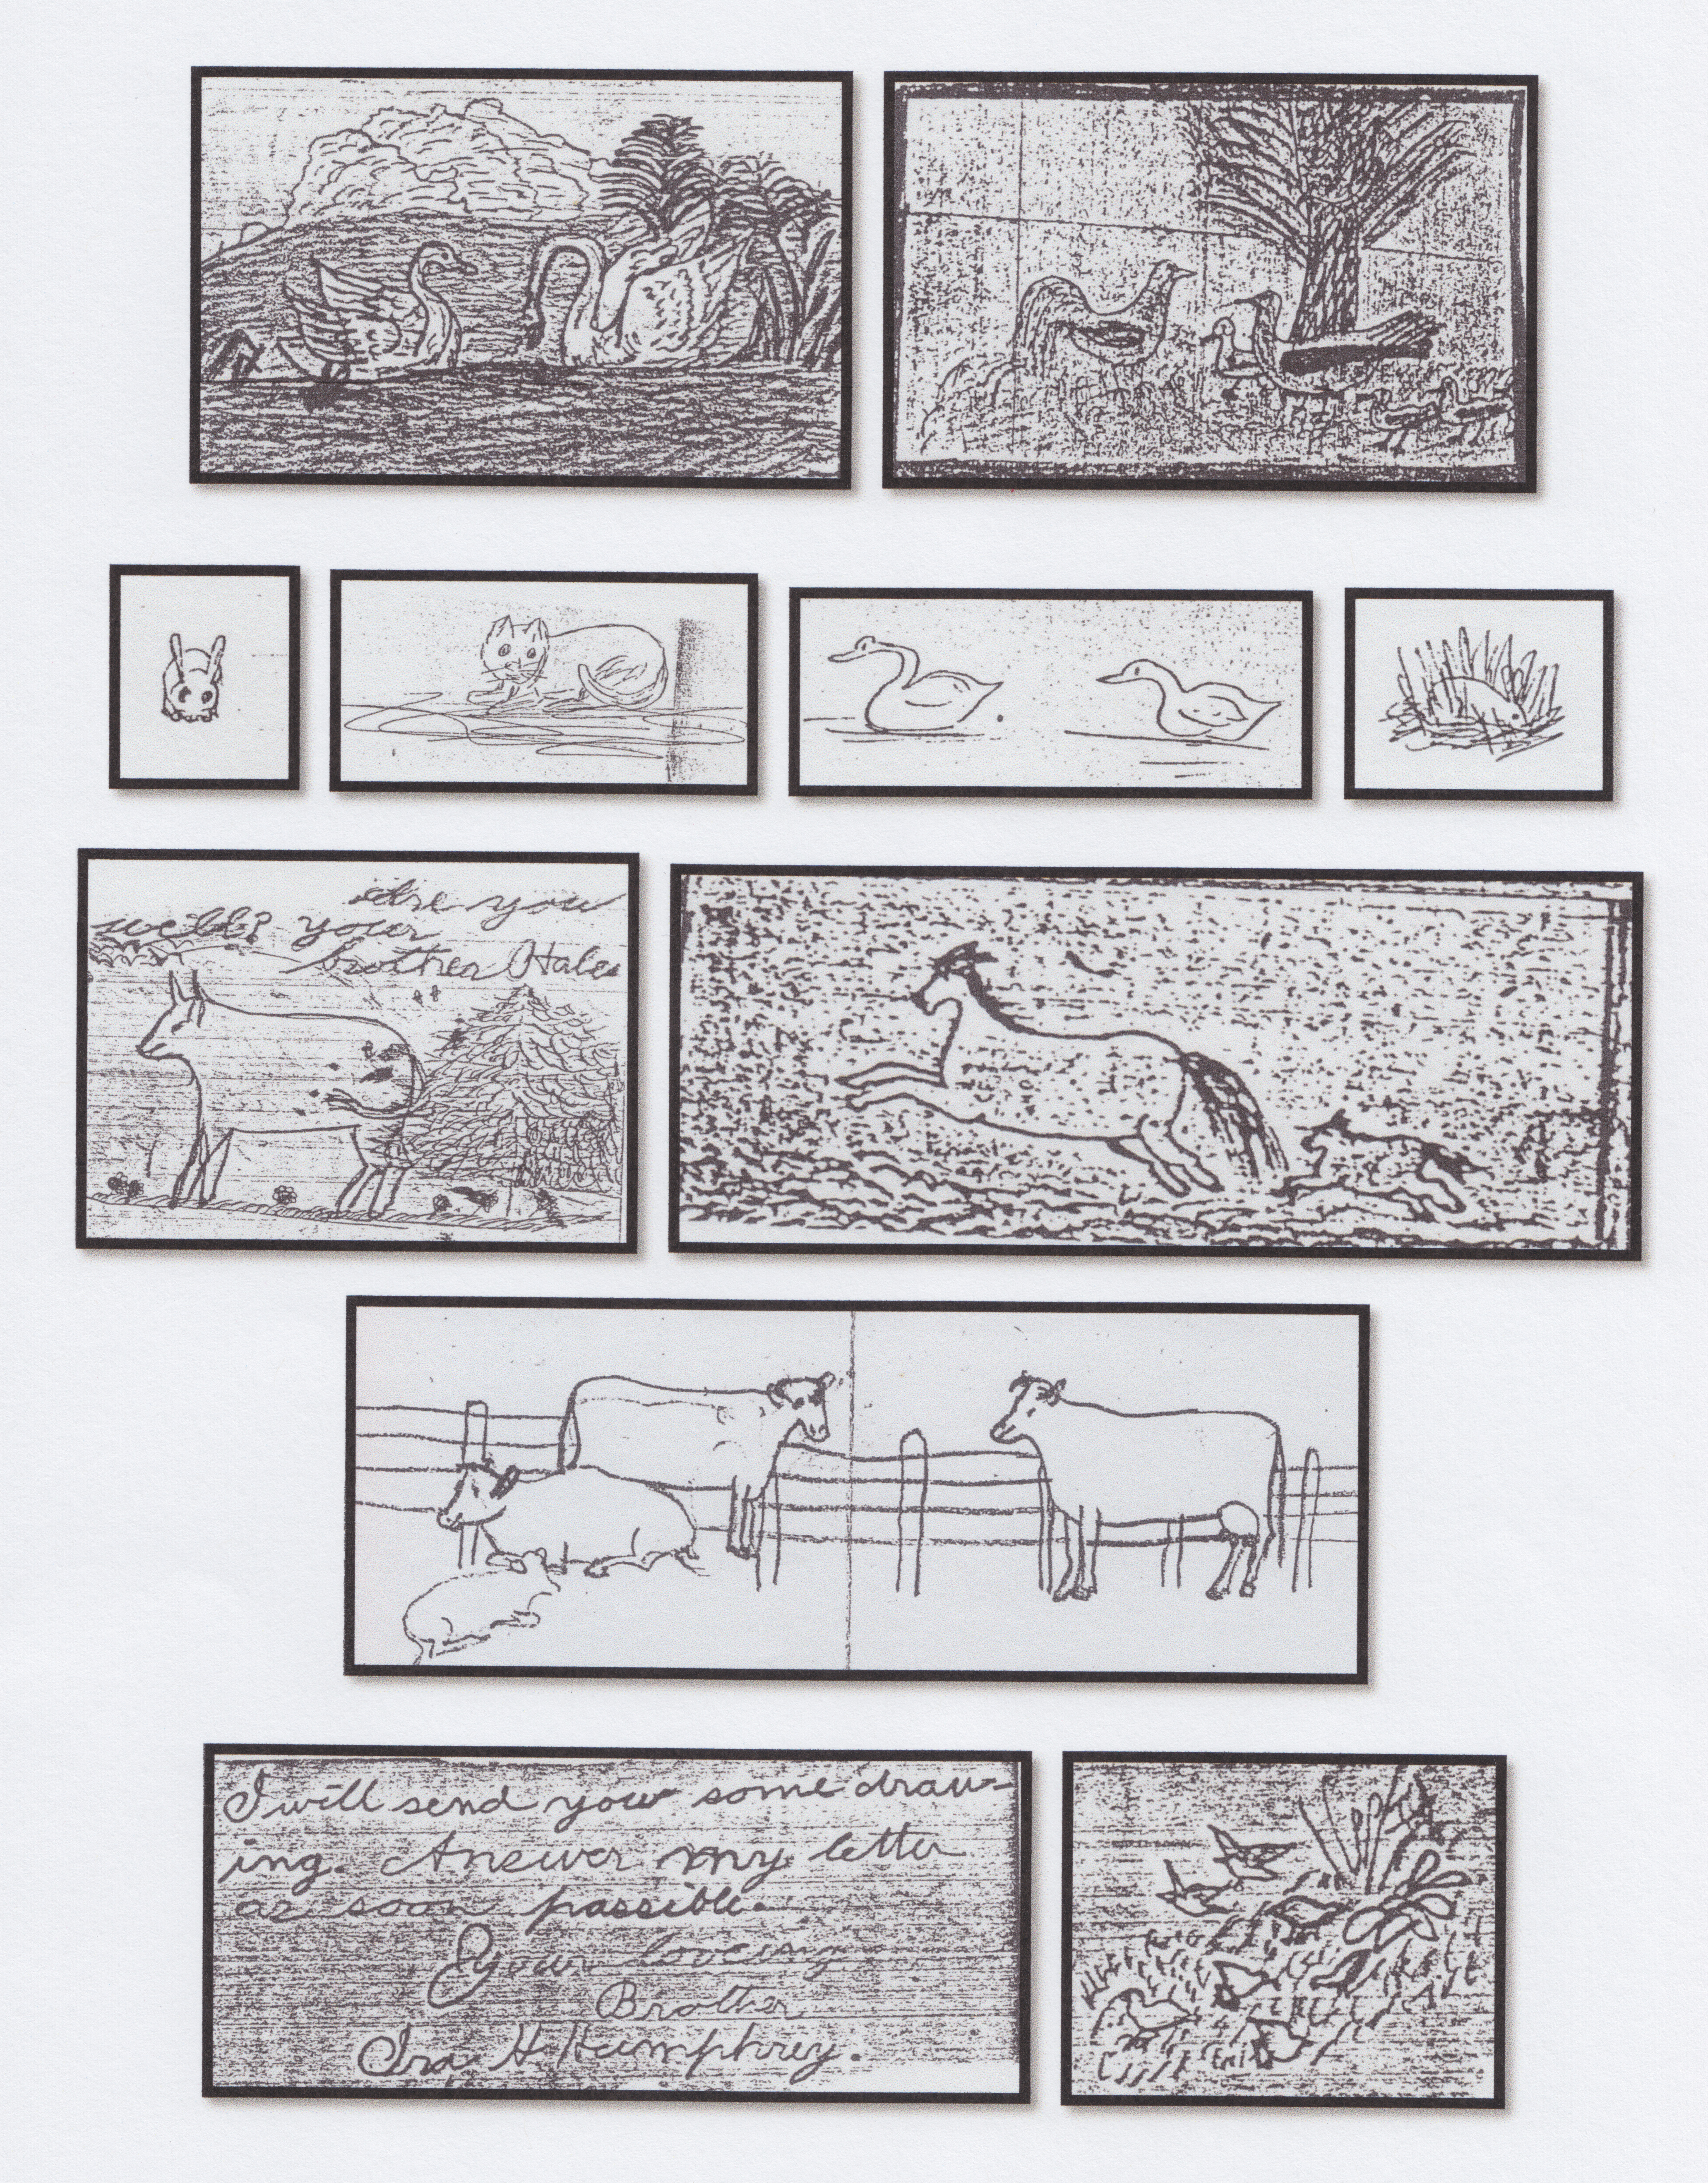 Are you
well? your
brother Hale
I will send you some draw-
ing. Answer my letter
as soon possible.
Your loveing
Brother
Ira H Humphrey.